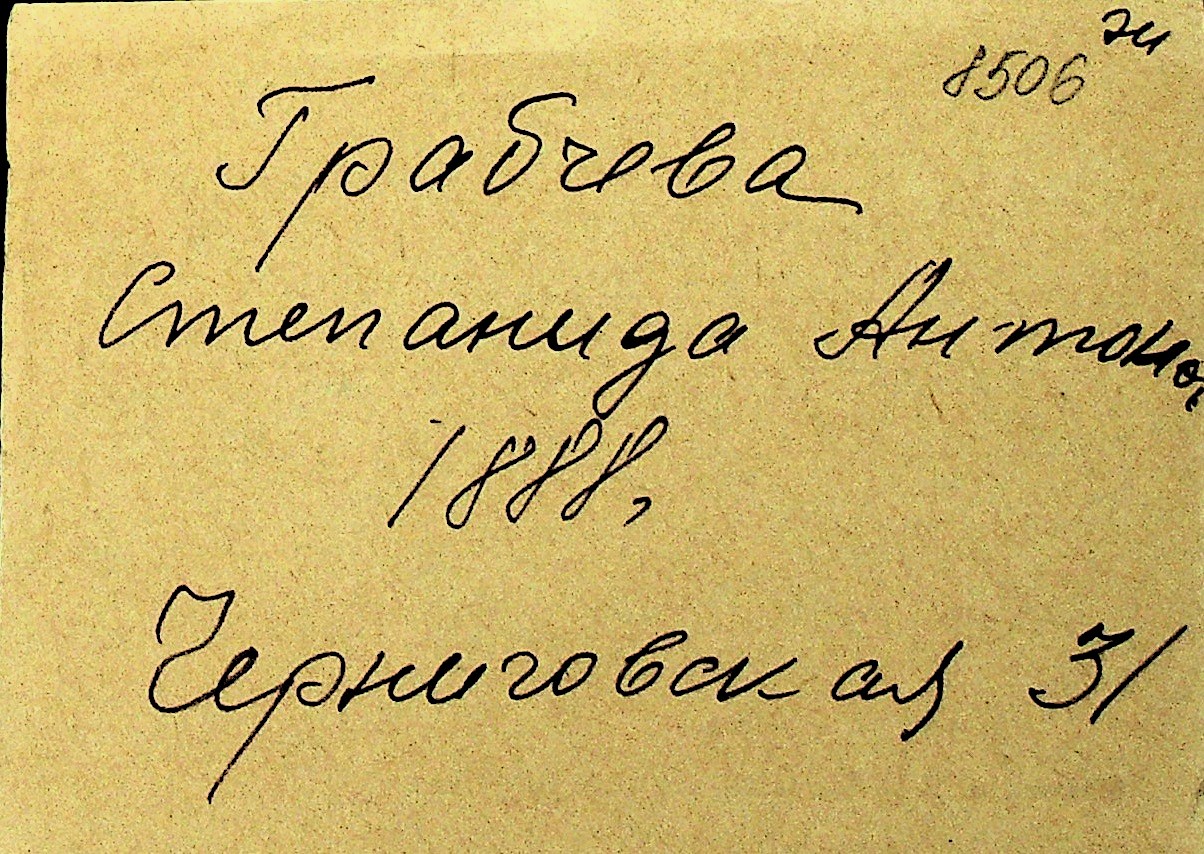 8506 эи
Грабчева
Степанида Антонов
1888,
Черниговская 31